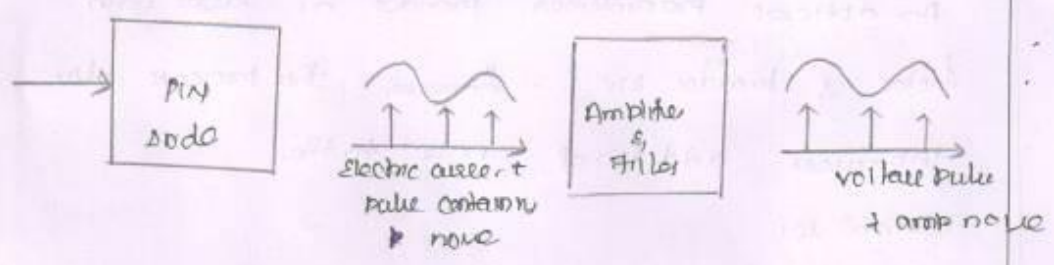 PIN
diode
Electric current
pulse containing
noise
Amplifier
&
Filter
voltage pulse
+ amp noise